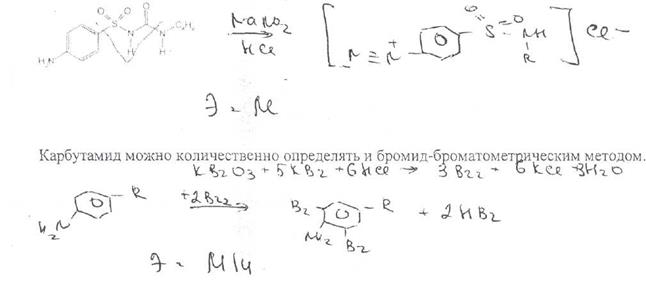 O O O
S N N-C4H9
H H
H2N
NaNO2
HCl
[ N ≡ N+ S O O NH R ] Cl-
Э = M
Карбутамид можно количественно определять и бромид-броматометрическим методом.
KBrO3 + 5KBr + 6HCl → 3Br2 + 6KCl 3H2O
H2N R +2Br2 Br NH2 Br R + 2HBr
Э = M/4